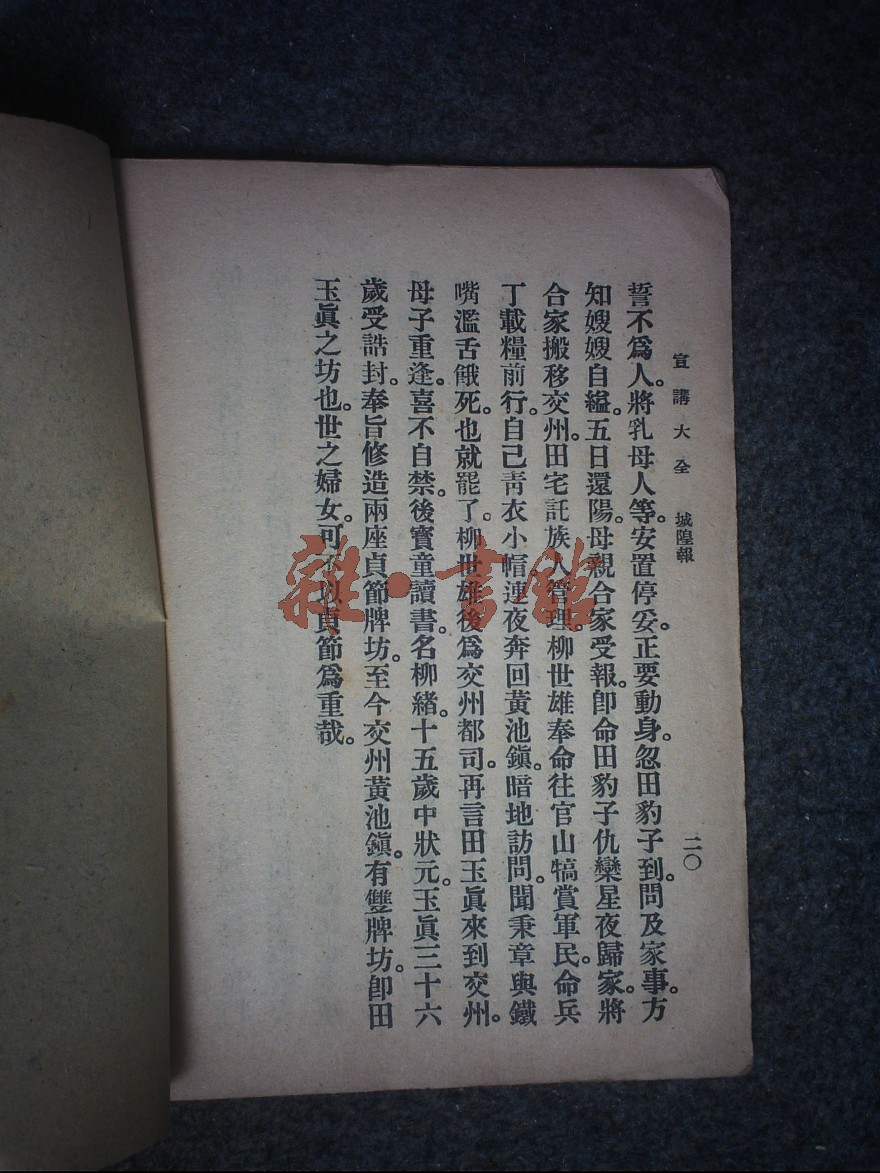 宣講大全 城隍報 二〇
誓不爲人。將乳母人等。安置停妥。正要動身。忽田豹子到。問及家事。方
知嫂嫂自縊。五日還陽。母親合家受報。卽命田豹子仇欒星夜歸家。將
合家搬移交州。田宅託族人管理。柳世雄奉命往官山犒賞軍民。命兵
丁載糧前行。自己靑衣小帽。連夜奔回黃池鎭。暗地訪問。聞秉章與鐵
嘴濫舌餓死。也就罷了。柳世雄後爲交州都司。再言田玉眞來到交州。
母子重逢。喜不自禁。後寶童讀書。名柳緒。十五歲中狀元。玉眞三十六
歲受誥封。奉旨修造兩座貞節牌坊。至今交州黃池鎭。有雙牌坊。卽田
玉眞之坊也。世之婦女。可不以貞節爲重哉。
雜·書館